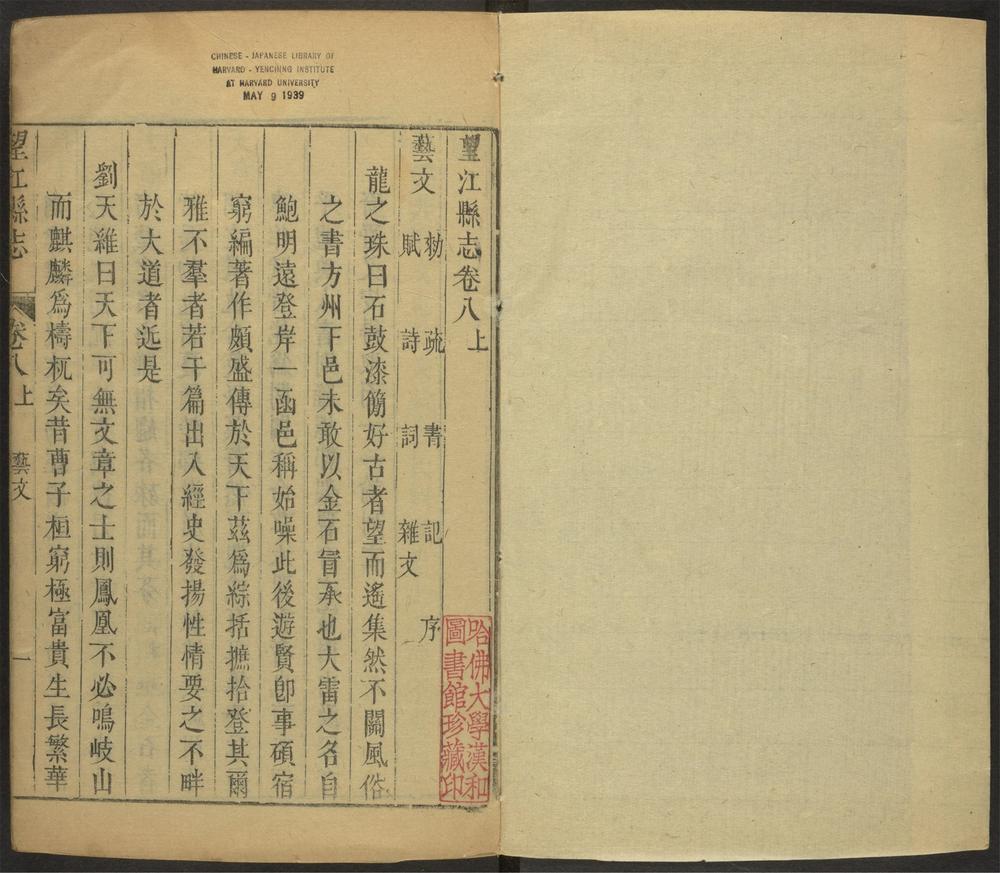 CHINESE - JAPANESE LIBRARY OF
HARVARD - YENCHING INSTITUTE
AT HARVARD UNIVERSITY
MAY 9 1939
望江縣志卷八上
藝文
勑 疏 書 記 序
賦 詩 詞 雜文
龍之珠曰石鼓漆簡好古者望而遙集然不關風俗
之書方州下邑未敢以金石冒承也大雷之名自
鮑明遠登岸一函邑稱始噪此後遊賢卽事碩宿
窮編著作頗盛傳於天下茲爲綜括摭拾登其爾
雅不羣者若干篇出入經史發揚性情要之不畔
於大道者近是
劉天維曰天下可無文章之士則鳳凰不必鳴岐山
而麒麟爲檮杌矣昔曹子桓窮極富貴生長繁華
望江縣志 卷八上 藝文 一
哈佛大學漢和
圖書館珍藏印